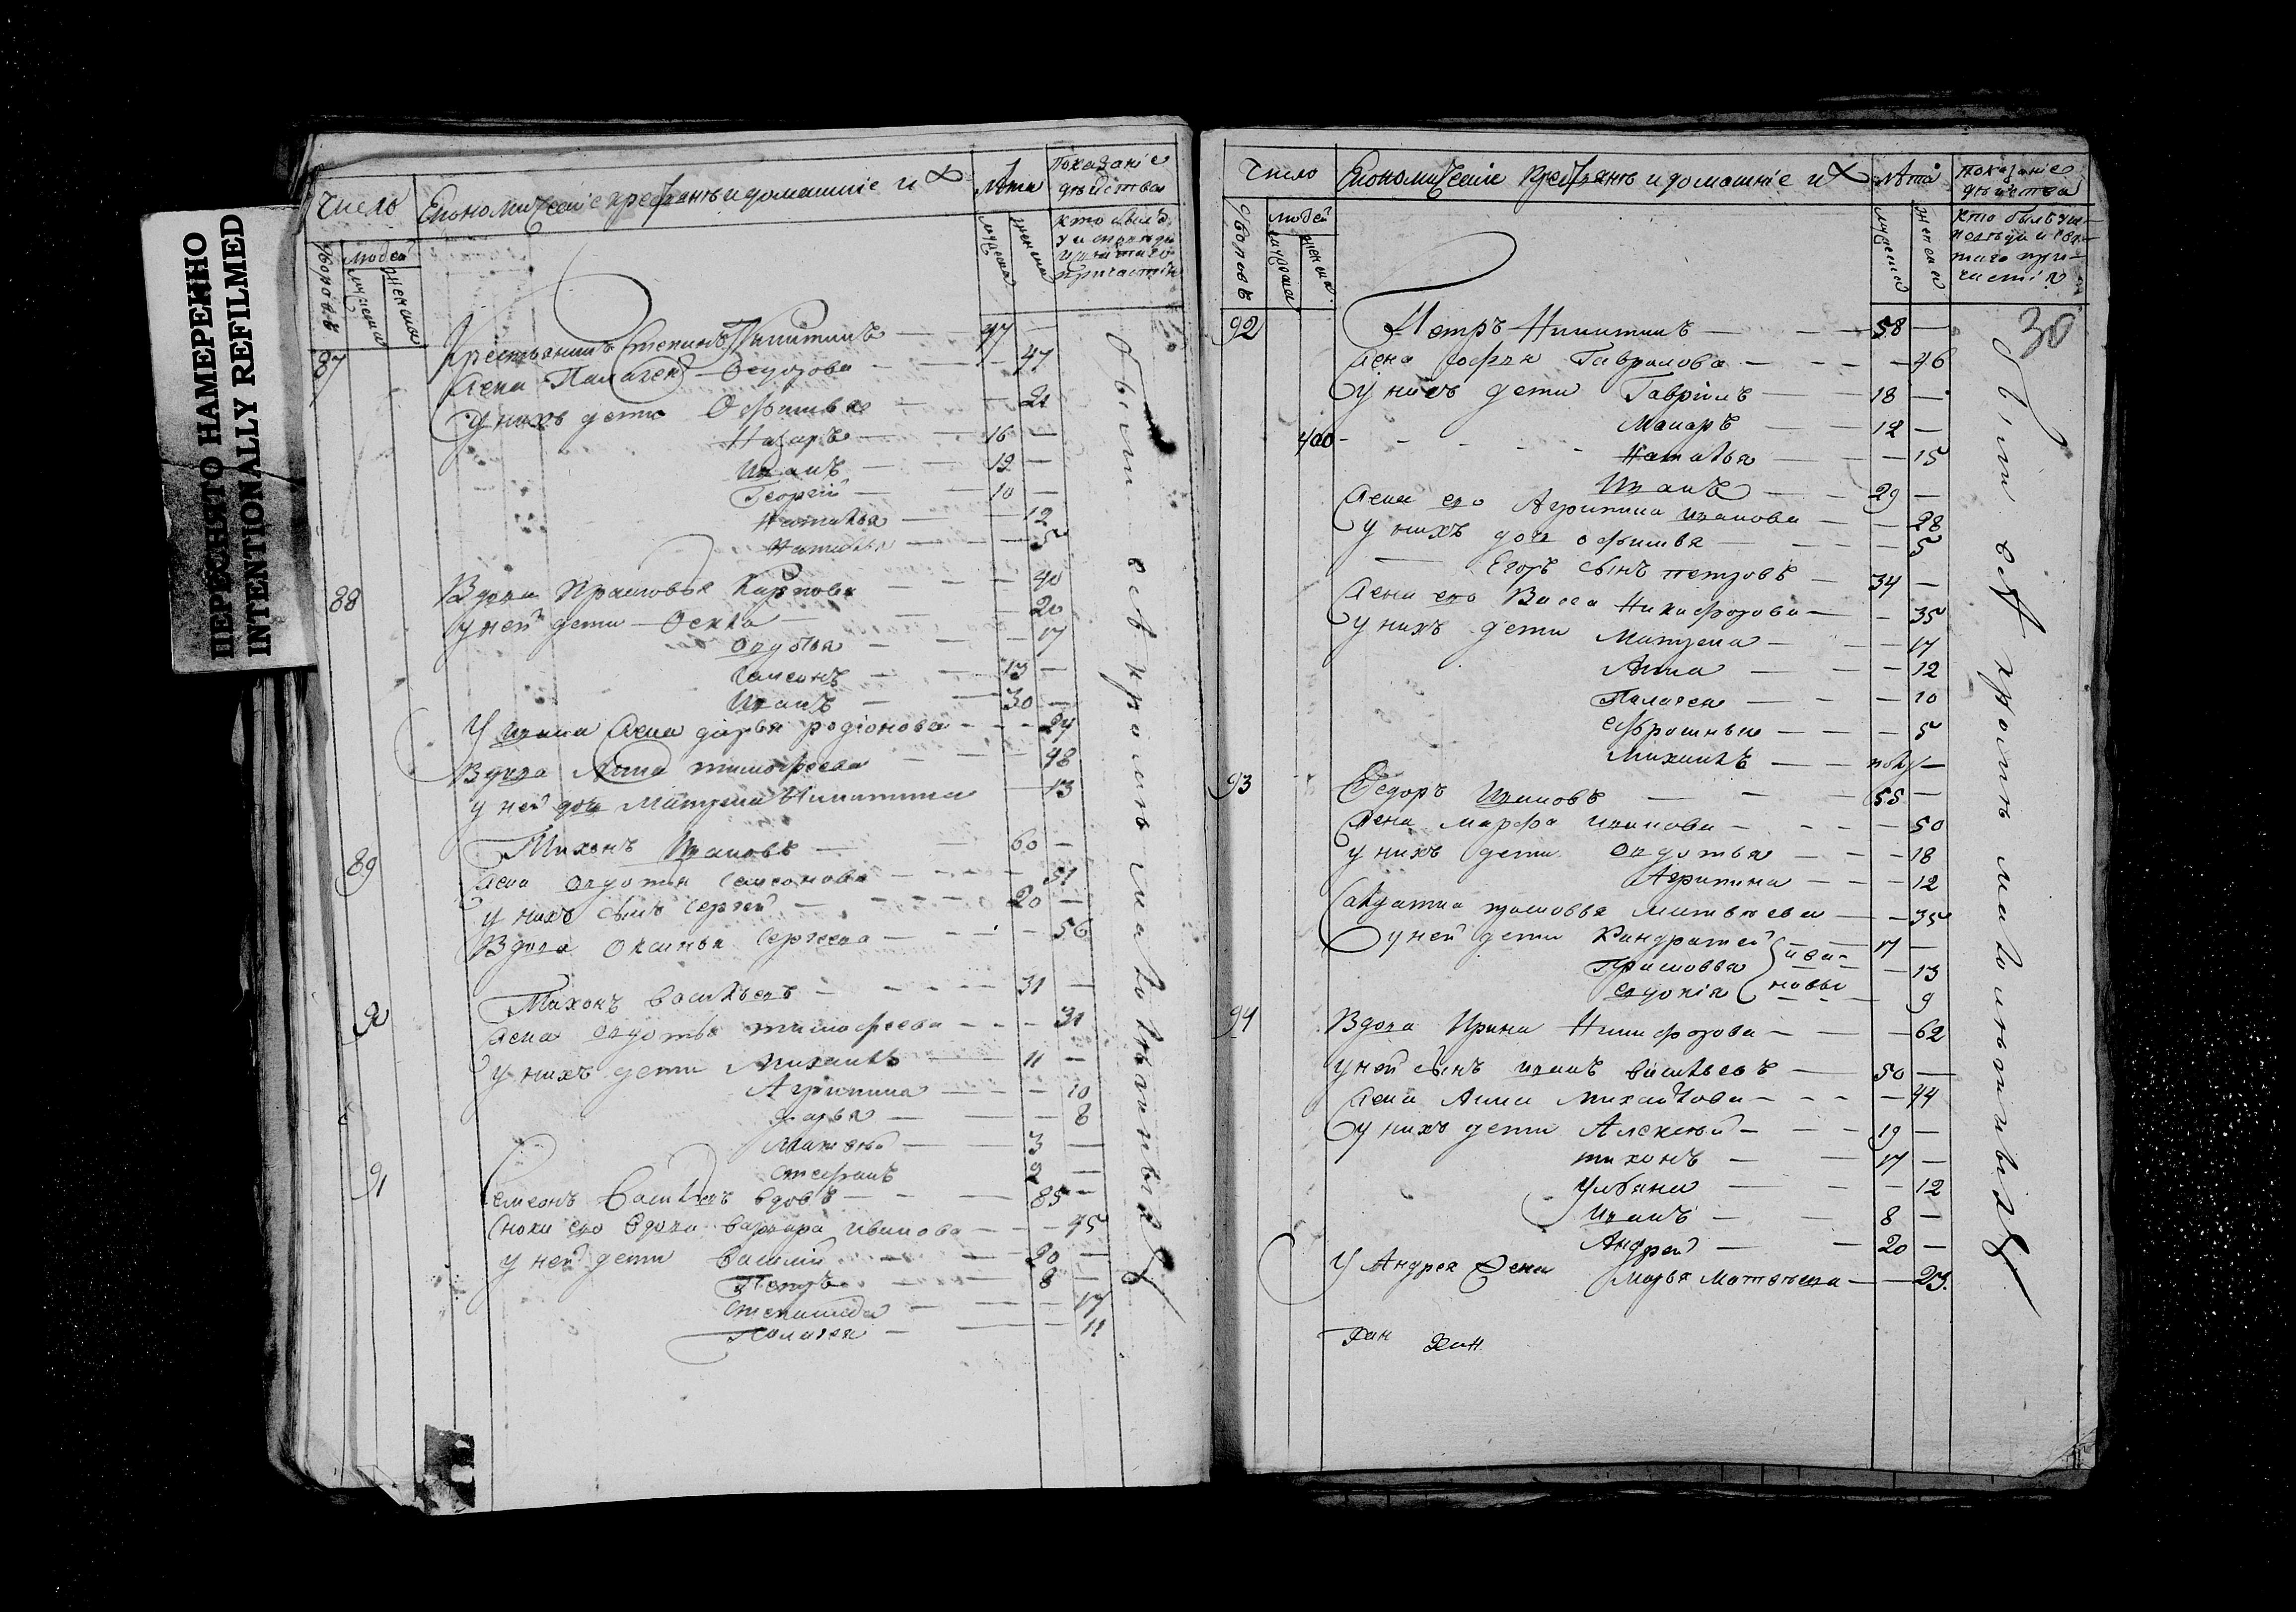 ПЕРЕСНЯТО НАМЕРЕННО
INTENTIONALLY REFILMED
Число Економическіе крестьянъ и домашніе их Лѣта Показаніе дѣйства
Дворовъ Людей мужеска женска мужеска женска кто былъ у исповѣди и святаго причастія
87 Крестьянинъ Степинъ Никитинъ — 47 —
Жена Палагея Федорова — — 47
У нихъ дети Офимья — — 21
Назаръ — 16 —
Иванъ — 19 —
Георгій — 10 —
Наталья — — 12
Наталья — — 5
88 Вдова Прасковья Карпова — — 40
у ней дети Фекла — — 20
Овдотья — — 17
Самсонъ — 13 —
Иванъ — 30 —
У Ивана жена дарья родіонова — — 24
Вдова Анна тимофеева — — 48
у ней доч Матрена Никитина — 13
89 Тихонъ Ивановъ — 60 —
Жена Овдотья Самсонова — — 51
у нихъ сынъ Сергей — 20 —
Вдова Оксинья Сергеева — — 56
90 Тихонъ Васильевъ — 31 —
Жена Овдотья тимофеева — — 31
у нихъ дети Михаилъ — 11 —
Агрипина — — 10
дарья — — 8
Матвѣй — 3 —
Стефанъ 2 —
91 Семенъ Васильевъ вдовъ — 85 —
Сноха ево вдова варвара иванова — — 45
у ней дети Василий — 20 —
Петръ — 8 —
Степанида — — 17
Палагея — — 11
Обыли всѣ кромѣ малолѣтныхъ
Число Економическіе крестьянъ и домашніе их лѣта показаніе дѣйства
Дворовъ людей мужеска женска мужеска женска кто былъ у исповѣди и святаго причастія
30
92 Петръ Никитинъ — 58 —
Жена Софья Гаврилова — — 46
У нихъ дети Гавріилъ — 18 —
Макаръ — 12 —
400 Наталья — — 15
Иванъ — 29 —
Жена ево Агрипина иванова — — 28
У нихъ доч офимья — — 5
Егоръ сынъ петровъ — 34 —
Жена ево Васса Никифорова — — 35
у нихъ дети Матрена — — 17
Анна — — 12
Палагея — — 10
Ефросинья — — 5
Михаилъ — полу —
93 Федоръ Ивановъ — 55 —
Жена марфа иванова — — 50
у нихъ дети Овдотья — — 18
Агрипина — — 12
Салдатка прасковья матвѣева — — 35
У ней дети Кандратей — 17 —
Прасковья — 13
Евдокія 9
ивановы
94 Вдова Ирина Никифорова — — 62
у ней сынъ иванъ васильевъ — 50 —
Жена Анна михайлова — — 44
У нихъ дети Алексѣй — 19 —
тихонъ — 17 —
Ульяна — — 12
Иванъ — 8 —
Андрей — 20 —
У Андрея жена Марья Матвѣева — — 23.
Обыли всѣ кромѣ малолѣтныхъ